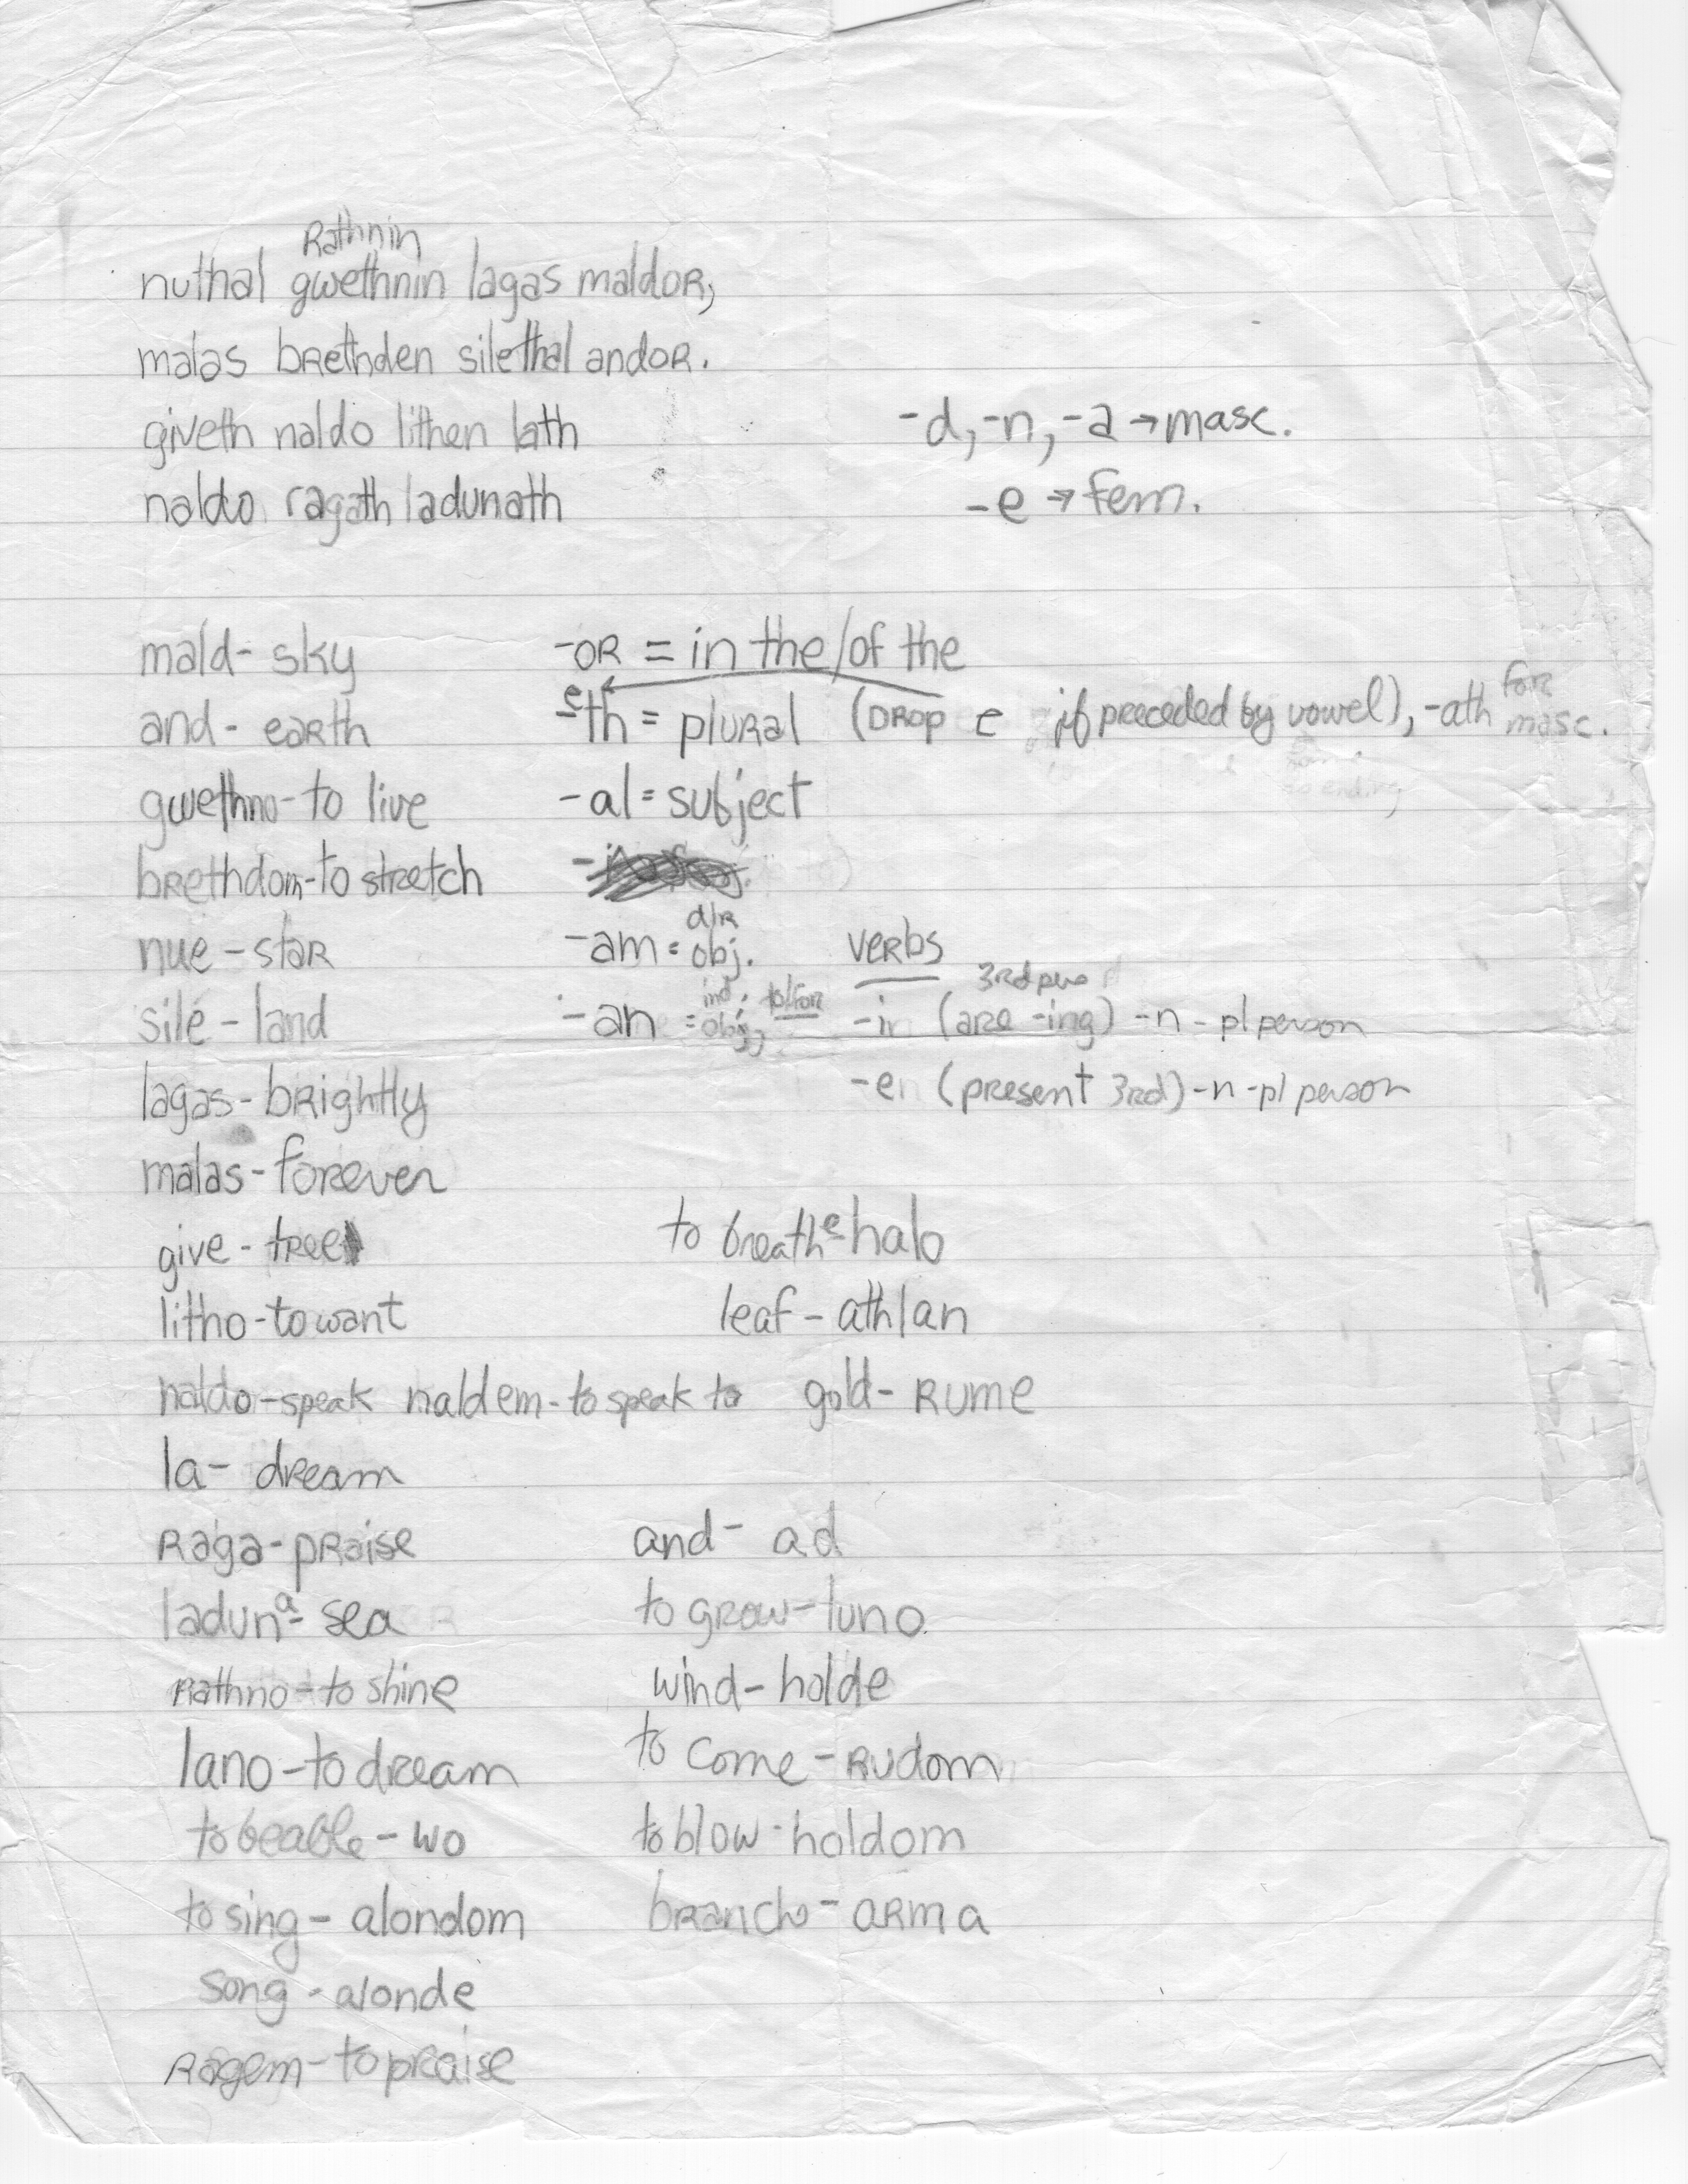 Rathnin
nuthal gwethnin lagas maldor,
malas brethden silethal andor.
giveth naldo lithen lath
naldo ragath ladunath
-d, -n, -a → masc.
-e → fem.
mald - sky
and - earth
gwethno - to live
brethdom - to stretch
nue - star
sile - land
lagas - brightly
malas - forever
give - tree
litho - to want
naldo - speak naldem - to speak to
la - dream
raga - praise
laduna - sea
rathno - to shine
lano - to dream
to be able - wo
to sing - alondom
song - alonde
ragem - to praise
-or = in the/of the
-eth = plural (drop e if preceded by vowel), -ath for masc.
-al = subject
-am = dir obj.
-an = ind. obj. to/for
verbs
-in (are -ing) 3rd -n - pl person
-en (present 3rd) -n - pl person
to breathe - halo
leaf - athlan
gold - rume
and - ad
to grow - luno
wind - holde
to come - rudom
to blow - holdom
branch - arma